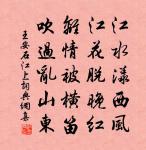 江水漾西風
江花脫晚紅
離情被橫笛
吹過亂山東
王安石江上詞典網集